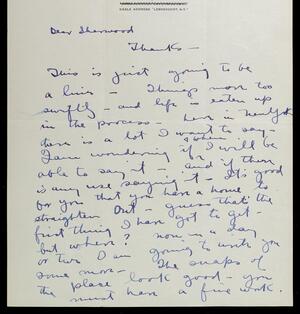 CABLE ADDRESS "LORBONGUST, N.Y."
Dear Sherwood
Thanks —
This is just going to be
a line — Things move too
swiftly — and life is eaten up
in the process — here in New York
there is a lot I want to say —
I am wondering if I will be
able to say it — and if there
is any use saying it — It's good
for you that you have a home to
straighten out — guess that's the
first thing I have got to get —
but where? now in a day
or two I am going to write you
some more — The snaps of
the place look good — you
must have a fine work.